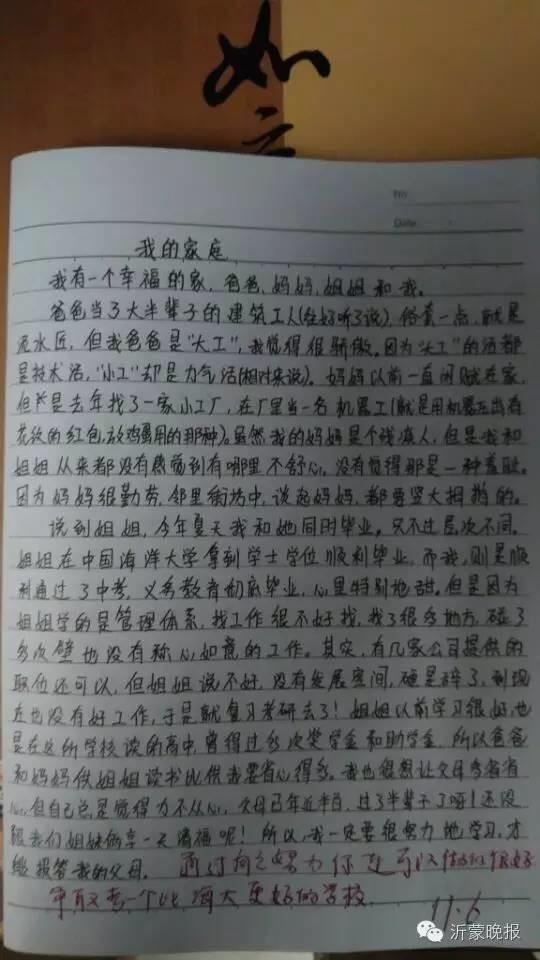 如
No
Date
我的家庭
我有一个幸福的家，爸爸，妈妈，姐姐和我。
爸爸当了大半辈子的建筑工人（往好听了说），俗套一点，就是
泥水匠，但我爸爸是“大工”，我觉得很骄傲。因为“大工”的活都
是技术活，“小工”却是力气活（相对来说）。妈妈以前一直闲赋在家，
但是去年找了一家小工厂，在厂里当一名机器工（就是用机器压出有
花纹的红包，放鸡蛋用的那种）。虽然我的妈妈是个残疾人，但是我和
姐姐从来都没有感觉到有哪里不舒心，没有觉得那是一种羞耻。
因为妈妈很勤劳，邻里街坊中，谈起妈妈，都要竖大拇指的。
说到姐姐，今年夏天我和她同时毕业。只不过层次不同。
姐姐在中国海洋大学拿到学士学位顺利毕业，而我，则是顺
利通过了中考，义务教育彻底毕业，心里特别地甜。但是因为
姐姐学的是管理体系，找工作很不好找，找了很多地方，碰了
多次壁也没有称心如意的工作。其实，有几家公司提供的
职位还可以，但姐姐说不好，没有发展空间，硬是辞了，到现
在也没有好工作，于是就复习考研去了！姐姐以前学习很好，也
是在这所学校读的高中，曾得过多次奖学金和助学金，所以爸爸
和妈妈供姐姐读书比供我要省心得多。我也很想让父母多省省
心，但自己总是觉得力不从心，父母已年近半百，过了半辈子了呀！还没
跟我们姐妹俩享一天清福呢！所以，我一定要很努力地学习，才
能报答我的父母。通过自己努力你是可以做的很好
争取考一个比海大更好的学校
11.6
沂蒙晚报